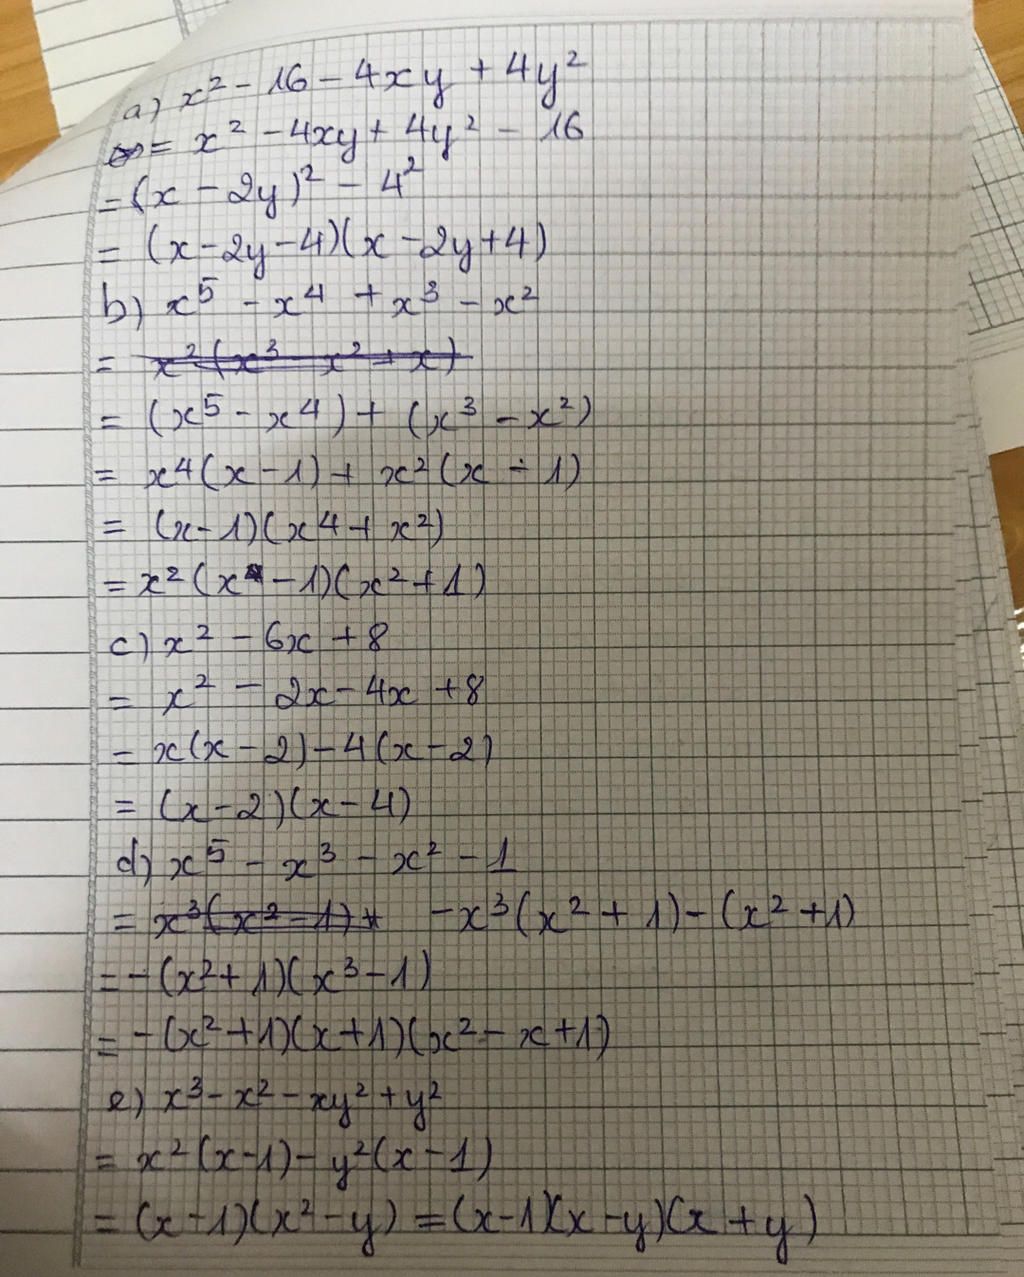 a) x² - 16 - 4xy + 4y²
= x² - 4xy + 4y² - 16
= (x - 2y)² - 4²
= (x - 2y - 4)(x - 2y + 4)
b) x⁵ - x⁴ + x³ - x²
= x²(x³ x² + x)
= (x⁵ - x⁴) + (x³ - x²)
= x⁴(x - 1) + x²(x - 1)
= (x - 1)(x⁴ + x²)
= x²(x - 1)(x² + 1)
c) x² - 6x + 8
= x² - 2x - 4x + 8
= x(x - 2) - 4(x - 2)
= (x - 2)(x - 4)
d) x⁵ - x³ - x² - 1
= x³(x² - 1) + - x³(x² + 1) - (x² + 1)
= - (x² + 1)(x³ - 1)
= - (x² + 1)(x + 1)(x² - x + 1)
e) x³ - x² - xy² + y²
= x²(x - 1) - y²(x - 1)
= (x - 1)(x² - y) = (x - 1)(x - y)(x + y)